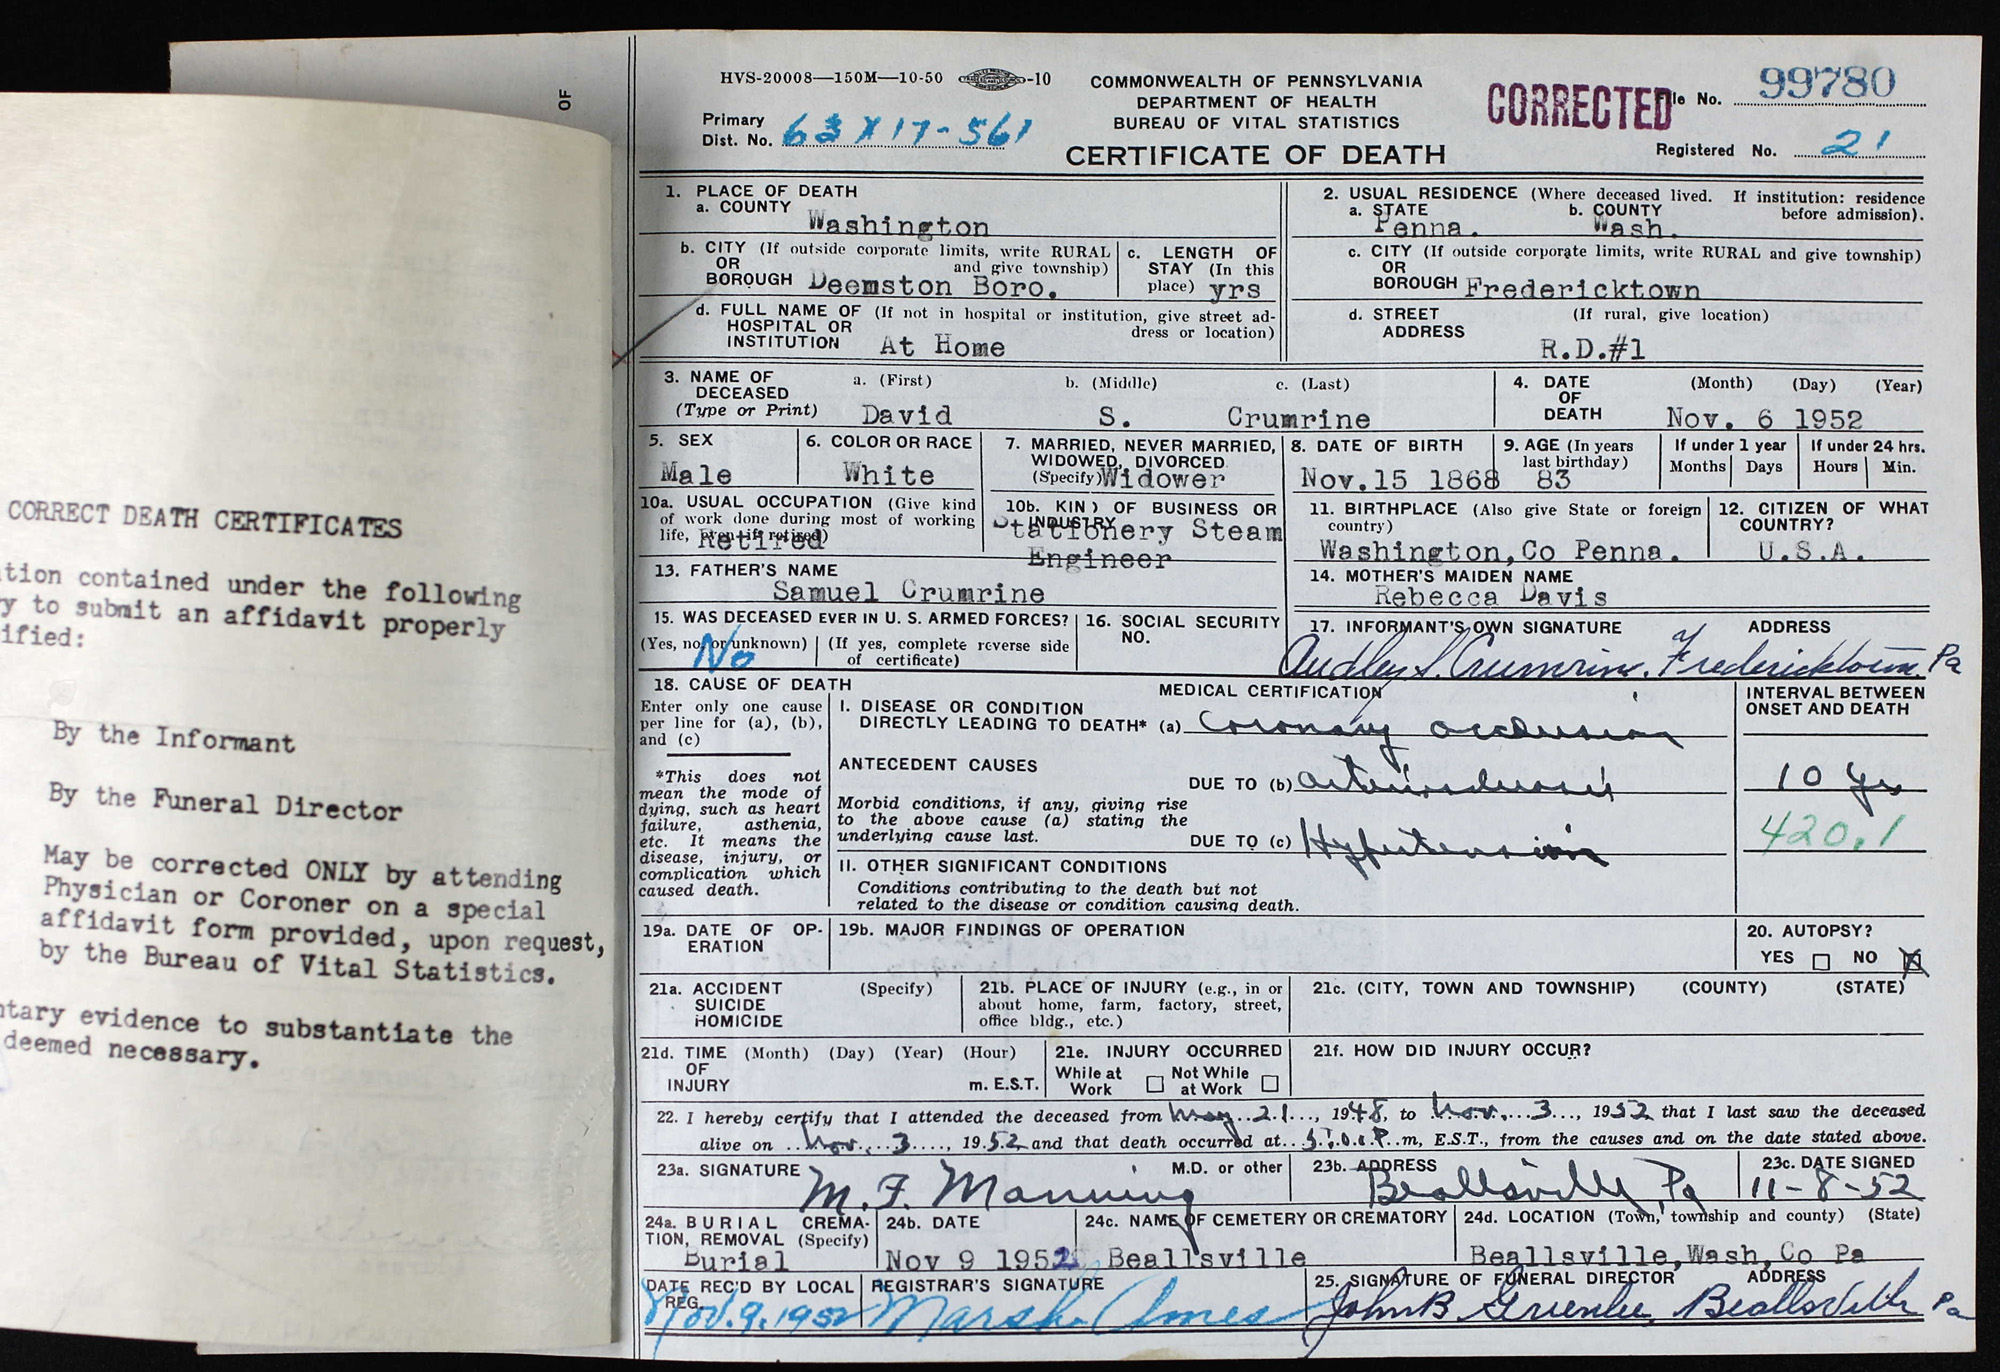 OF
CORRECT DEATH CERTIFICATES
tion contained under the following
y to submit an affidavit properly
ified:
By the Informant
By the Funeral Director
May be corrected ONLY by attending
Physician or Coroner on a special
affidavit form provided, upon request,
by the Bureau of Vital Statistics.
tary evidence to substantiate the
deemed necessary.
HVS-20008—150M—10-50 -10
COMMONWEALTH OF PENNSYLVANIA
DEPARTMENT OF HEALTH
BUREAU OF VITAL STATISTICS
CERTIFICATE OF DEATH
CORRECTED
File No. 99780
Primary
Dist. No. 63X17-561
Registered No. 21
1. PLACE OF DEATH
a. COUNTY
Washington
2. USUAL RESIDENCE (Where deceased lived. If institution: residence
before admission).
a. STATE Penna. b. COUNTY Wash.
b. CITY (If outside corporate limits, write RURAL
OR and give township)
BOROUGH Deemston Boro.
c. LENGTH OF
STAY (In this
place) yrs
c. CITY (If outside corporate limits, write RURAL and give township)
OR
BOROUGH Fredericktown
d. FULL NAME OF (If not in hospital or institution, give street ad-
HOSPITAL OR dress or location)
INSTITUTION At Home
d. STREET (If rural, give location)
ADDRESS
R.D.#1
3. NAME OF a. (First) b. (Middle) c. (Last)
DECEASED
(Type or Print) David S. Crumrine
4. DATE (Month) (Day) (Year)
OF
DEATH Nov. 6 1952
5. SEX
Male
6. COLOR OR RACE
White
7. MARRIED, NEVER MARRIED,
WIDOWED, DIVORCED
(Specify) Widower
8. DATE OF BIRTH
Nov.15 1868
9. AGE (In years
last birthday)
83
If under 1 year
Months Days
If under 24 hrs.
Hours Min.
10a. USUAL OCCUPATION (Give kind
of work done during most of working
life, even if retired)
Retired
10b. KIND OF BUSINESS OR
INDUSTRY
Stationery Steam
Engineer
11. BIRTHPLACE (Also give State or foreign
country)
Washington,Co Penna.
12. CITIZEN OF WHAT
COUNTRY?
U.S.A.
13. FATHER'S NAME
Samuel Crumrine
14. MOTHER'S MAIDEN NAME
Rebecca Davis
15. WAS DECEASED EVER IN U. S. ARMED FORCES?
(Yes, no, or unknown) (If yes, complete reverse side
of certificate)
No
16. SOCIAL SECURITY
NO.
17. INFORMANT'S OWN SIGNATURE ADDRESS
Audley S. Crumrine, Fredericktown, Pa
18. CAUSE OF DEATH
Enter only one cause
per line for (a), (b),
and (c)
*This does not
mean the mode of
dying, such as heart
failure, asthenia,
etc. It means the
disease, injury, or
complication which
caused death.
MEDICAL CERTIFICATION
I. DISEASE OR CONDITION
DIRECTLY LEADING TO DEATH* (a) Coronary occlusion
ANTECEDENT CAUSES
DUE TO (b) arteriosclerosis
Morbid conditions, if any, giving rise
to the above cause (a) stating the
underlying cause last.
DUE TO (c) Hypertension
II. OTHER SIGNIFICANT CONDITIONS
Conditions contributing to the death but not
related to the disease or condition causing death.
INTERVAL BETWEEN
ONSET AND DEATH
10 yrs
420.1
19a. DATE OF OP-
ERATION
19b. MAJOR FINDINGS OF OPERATION
20. AUTOPSY?
YES NO X
21a. ACCIDENT (Specify)
SUICIDE
HOMICIDE
21b. PLACE OF INJURY (e.g., in or
about home, farm, factory, street,
office bldg., etc.)
21c. (CITY, TOWN AND TOWNSHIP) (COUNTY) (STATE)
21d. TIME (Month) (Day) (Year) (Hour)
OF
INJURY m. E.S.T.
21e. INJURY OCCURRED
While at Not While
Work at Work
21f. HOW DID INJURY OCCUR?
22. I hereby certify that I attended the deceased from May 21, 1948, to Nov. 3, 1952 that I last saw the deceased
alive on Nov. 3, 1952 and that death occurred at P. m, E.S.T., from the causes and on the date stated above.
23a. SIGNATURE M.D. or other
M. F. Manning
23b. ADDRESS
Beallsville, Pa
23c. DATE SIGNED
11-8-52
24a. BURIAL CREMA-
TION, REMOVAL (Specify)
Burial
24b. DATE
Nov 9 1952
24c. NAME OF CEMETERY OR CREMATORY
Beallsville
24d. LOCATION (Town, township and county) (State)
Beallsville,Wash,Co Pa
DATE REC'D BY LOCAL
REG.
Nov. 9, 1952
REGISTRAR'S SIGNATURE
Marsh Ames
25. SIGNATURE OF FUNERAL DIRECTOR ADDRESS
John B Greenlee, Beallsville Pa